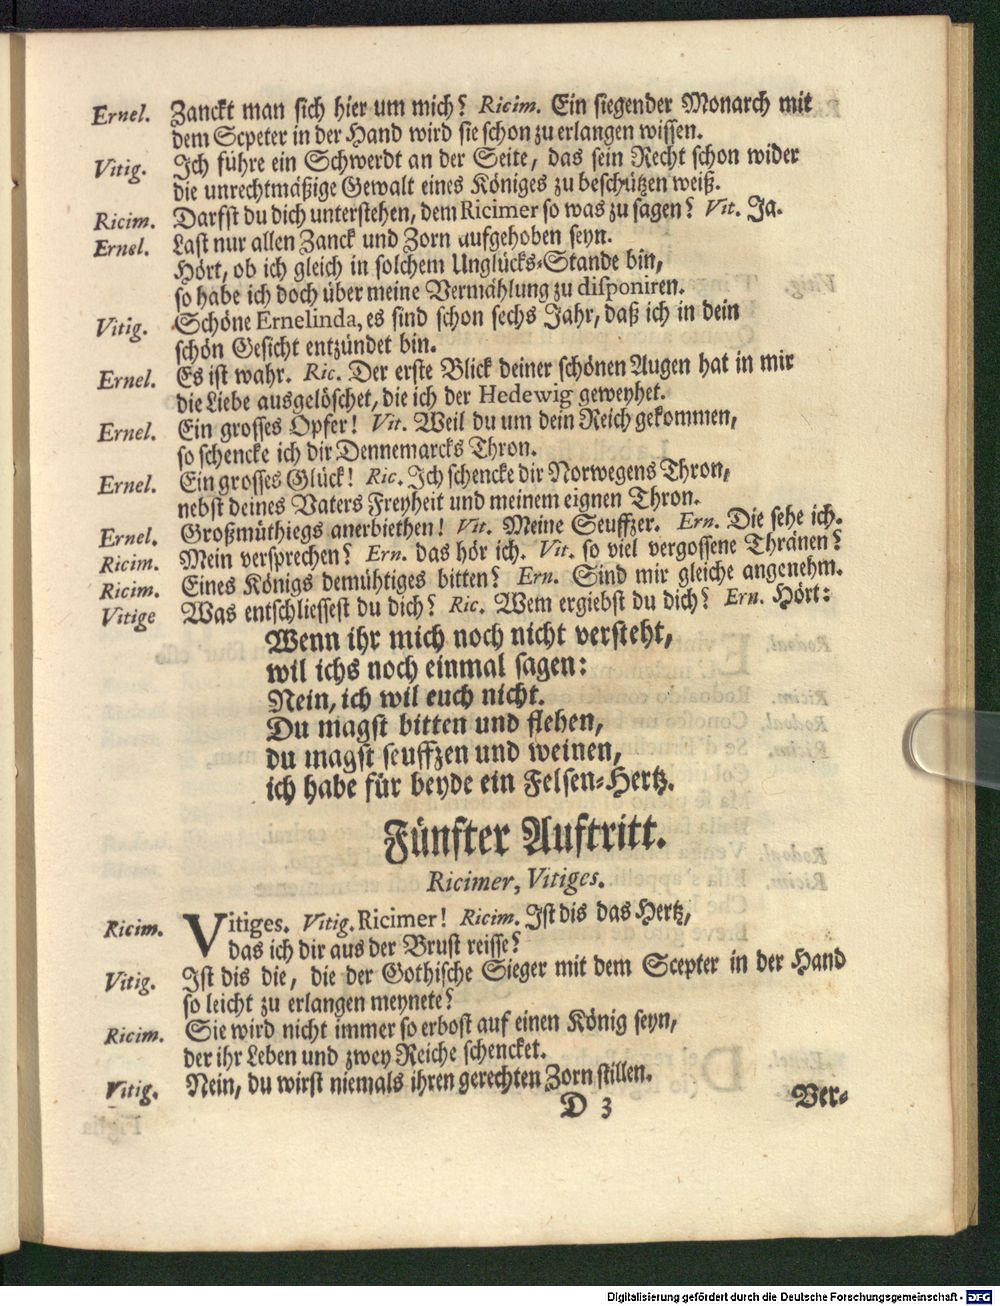 Ernel. Zanckt man sich hier um mich? Ricim. Ein siegender Monarch mit
dem Scpeter in der Hand wird sie schon zu erlangen wissen.
Vitig. Ich führe ein Schwerdt an der Seite, das sein Recht schon wider
die unrechtmäßige Gewalt eines Königes zu beschützen weiß.
Ricim. Darfst du dich unterstehen, dem Ricimer so was zu sagen? Vit. Ja.
Ernel. Last nur allen Zanck und Zorn aufgehoben seyn.
Hört, ob ich gleich in solchem Unglücks-Stande bin,
so habe ich doch über meine Vermählung zu disponiren.
Vitig. Schöne Ernelinda, es sind schon sechs Jahr, daß ich in dein
schön Gesicht entzündet bin.
Ernel. Es ist wahr. Ric. Der erste Blick deiner schönen Augen hat in mir
die Liebe ausgelöschet, die ich der Hedewig geweyhet.
Ernel. Ein grosses Opfer! Vit. Weil du um dein Reich gekommen,
so schencke ich dir Dennemarcks Thron.
Ernel. Ein grosses Glück! Ric. Ich schencke dir Norwegens Thron,
nebst deines Vaters Freyheit und meinem eignen Thron.
Ernel. Großmüthiegs anerbiethen! Vit. Meine Seuffzer. Ern. Die sehe ich.
Ricim. Mein versprechen? Ern. das hör ich. Vit. so viel vergossene Thränen?
Ricim. Eines Königs demühtiges bitten? Ern. Sind mir gleiche angenehm.
Vitige Was entschliessest du dich? Ric. Wem ergiebst du dich? Ern. Hört:
Wenn ihr mich noch nicht versteht,
wil ichs noch einmal sagen:
Nein, ich wil euch nicht.
Du magst bitten und flehen,
du magst seuffzen und weinen,
ich habe für beyde ein Felsen-Hertz.
Fünfter Auftritt.
Ricimer, Vitiges.
Ricim. Vitiges. Vitig. Ricimer! Ricim. Ist dis das Hertz,
das ich dir aus der Brust reisse?
Vitig. Ist dis die, die der Gothische Sieger mit dem Scepter in der Hand
so leicht zu erlangen meynete?
Ricim. Sie wird nicht immer so erbost auf einen König seyn,
der ihr Leben und zwey Reiche schencket.
Vitig. Nein, du wirst niemals ihren gerechten Zorn stillen.
D 3 Ver-
Digitalisierung gefördert durch die Deutsche Forschungsgemeinschaft - DFG